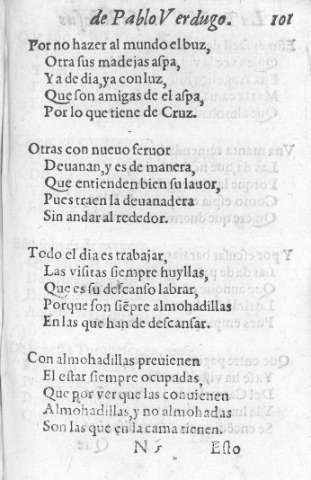 de Pablo Verdugo. 101
Por no hazer al mundo el buz,
Otra sus madejas aspa,
Ya de dia, ya con luz,
Que son amigas de el aspa,
Por lo que tiene de Cruz.
Otras con nueuo feruor
Deuanan, y es de manera,
Que entienden bien su lauor,
Pues traen la deuanadera
Sin andar al rededor.
Todo el dia es trabajar,
Las visitas siempre huyllas,
Que es su descanso labrar,
Porque son siẽpre almohadillas
En las que han de descansar.
Con almohadillas preuienen
El estar siempre ocupadas,
Que por ver que las conuienen
Almohadillas, y no almohadas
Son las que en la cama tienen.
N 5 Esto